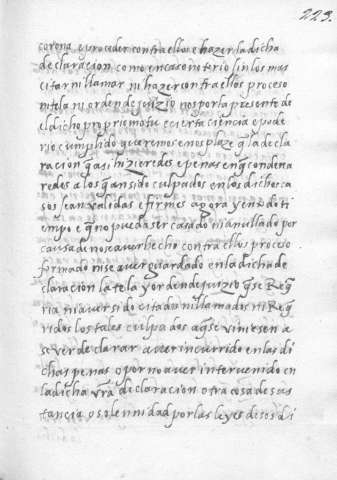 223.
corona e proceder contra ellos e hazer la dicha
declaracion como en caso notorio sin los mas
citar ni llamar ni hazer contra ellos proceso
ni tela ni orden de juizio nos por la presente de
el dicho proprio motu e cierta sciencia e pode
rio cumplido queremos e nos plaze q̃ la decla
racion q̃ asi hizieredes e penas en q̃ condena
redes a los q̃ an sido culpados en los dichos ca
sos sean validas e firmes agora y en todo ti
empo e q̃ no pueda ser casado ni anullado por
causa de no se aver hecho contra ellos proceso
formado ni se aver guardado en la dicha de
claracion la tela y orden de juizio q̃ se Req̃
ria ni aver sido citados ni llamados ni Req̃
ridos los tales culpados a q̃ se viniesen a
se ver declarar aver incurrido en las di
chas penas o por no aver intervenido en
la dicha vr̃a declaracion otra cosa de sus
tancia o solennidad por las leyes destos di